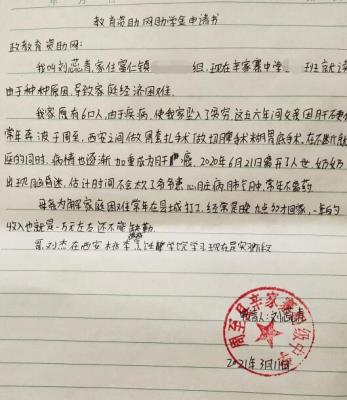 教育资助网助学金申请书
政教育资助网:
我叫刘蕊青,家住富仁镇 组,现在辛家寨中学 班就读
由于种种原因,导致家庭经济困难。
我家原有6口人,由于疾病,使我家坠入了贫穷,这五六年间父亲因肝不好
常年奔波于周至,西安之间做 手术
的同时,病情也逐渐加重成为肝癌,2020年6月21日离开了人世,奶奶
出现 昏迷,估计时间不会太 多 患心脏病肺气肿,常年不离药
母亲为 解家庭困难常年在县城打工,经常是晚九点多才回家,一年的
收入也就是一万元左右,还不能
哥刘杰在西安 学院学习现在是实习阶段
报告人:刘蕊青
2021年3月11日
周至县辛家寨 级中